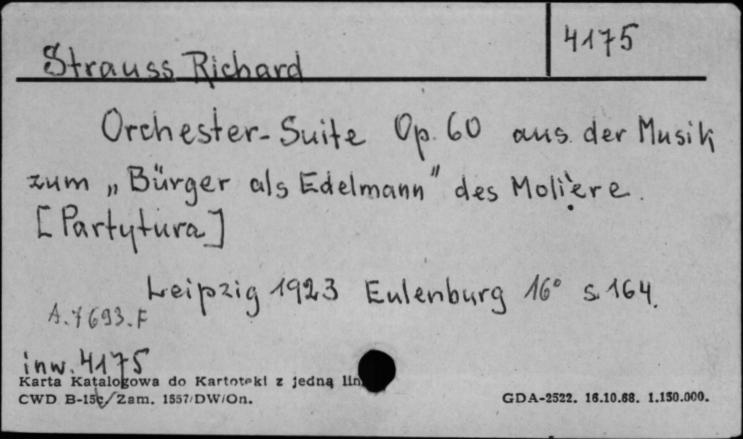 4175
Strauss Richard
Orchester-Suite Op. 60 aus der Musik
zum „Bürger als Edelmann" des Molière.
[Partytura]
Leipzig 1923 Eulenburg 16° s. 164.
A.7693.F
inw. 4175
Karta Katalogowa do Kartoteki z jedną
CWD B-15c/Zam. 1557/DW/On.
GDA-2522. 16.10.68. 1.150.000.